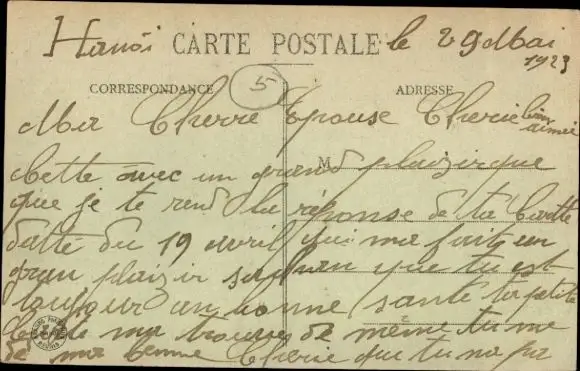 Hanoi CARTE POSTALE le 29 Mai
1923
CORRESPONDANCE 5 ADRESSE
Ma Cherre Epouse Cherie bien
aimée
M
Cette avec un grand plaizir que
que je te rend la réponse de ta Cartte
datté du 19 avril qui ma fait un
gran plaizir que tu est
toujour en bonne santé ta petite
ma de même tu me
di ma bonne Cherie que tu na pa